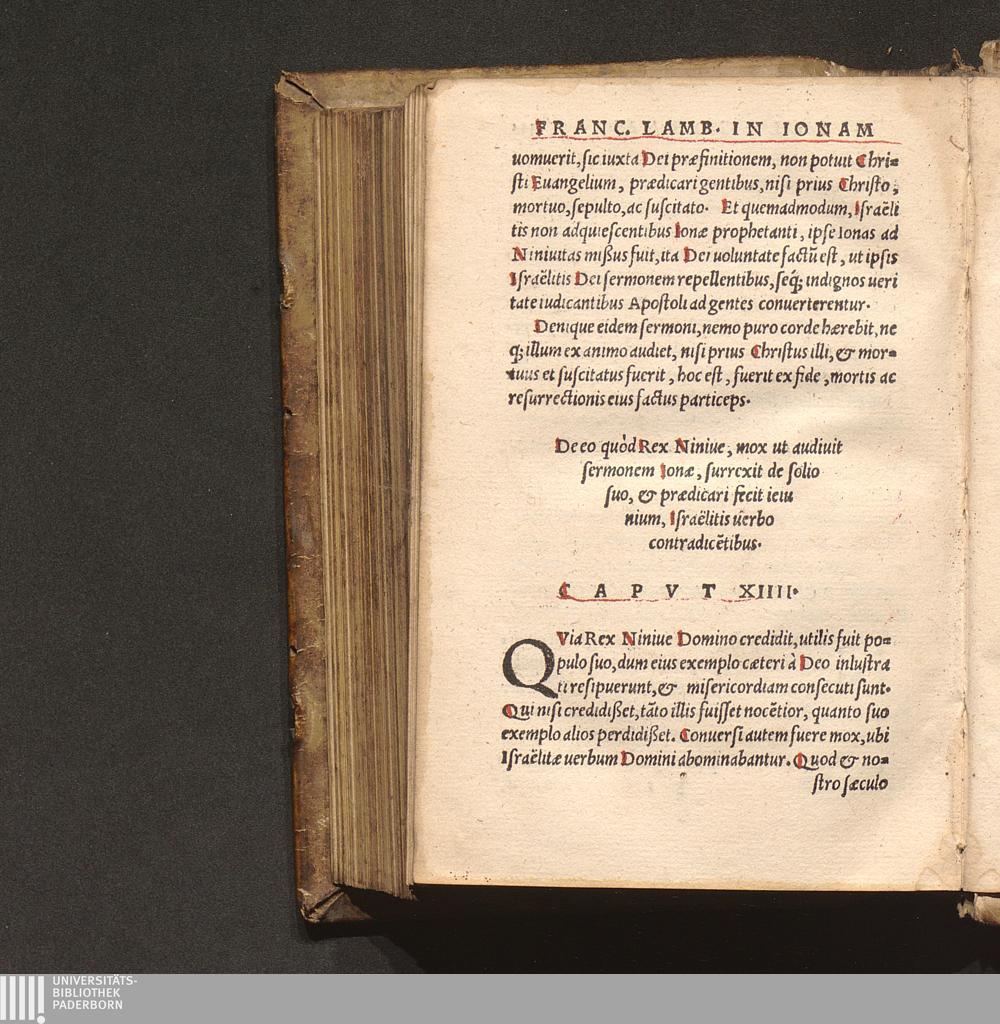 FRANC. LAMB. IN IONAM
uomuerit, sic iuxta Dei præfinitionem, non potuit Chri=
sti Euangelium, prædicari gentibus, nisi prius Christo,
mortuo, sepulto, ac suscitato. Et quemadmodum, Israëli
tis non adquiescentibus Ionæ prophetanti, ipse Ionas ad
Niniuitas mißus fuit, ita Dei uoluntate factũ est, ut ipsis
Israëlitis Dei sermonem repellentibus, seq́; indignos ueri
tate iudicantibus Apostoli ad gentes conuerterentur.
Denique eidem sermoni, nemo puro corde hærebit, ne
q; illum ex animo audiet, nisi prius Christus illi, & mor=
tuus et suscitatus fuerit, hoc est, fuerit ex fide, mortis ac
resurrectionis eius factus particeps.
De eo quòd Rex Niniue, mox ut audiuit
sermonem Ionæ, surrexit de solio
suo, & prædicari fecit ieiu
nium, Israëlitis uerbo
contradicẽtibus.
CAPVT XIIII.
QVia Rex Niniue Domino credidit, utilis fuit po=
pulo suo, dum eius exemplo cæteri à Deo inlustra
ti resipuerunt, & misericordiam consecuti sunt.
Qui nisi credidißet, tãto illis fuisset nocẽtior, quanto suo
exemplo alios perdidißet. Conuersi autem fuere mox, ubi
Israëlitæ uerbum Domini abominabantur. Quod & no=
stro sæculo
UNIVERSITÄTS-
BIBLIOTHEK
PADERBORN